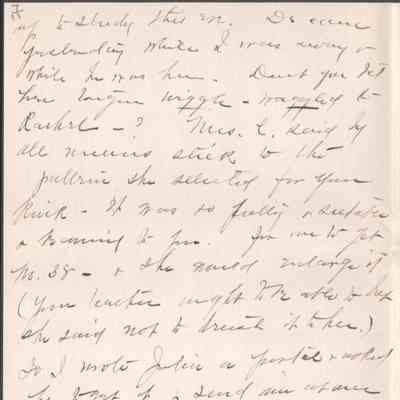 up to study this in. Dr came
yesterday while I was away &
while he was here. Don't you bet
her tongue wiggle - waggled to
Rachel - ? Mrs. C. said by
all means stick to the
pattern she selected for your
- It was so pretty &
& becoming to you. for me to get
No. 38 - & she would enlarge it
(Your teacher ought to be able to help
she said not to break it to her.)
So I wrote Julia a postal & asked
her to get it & send